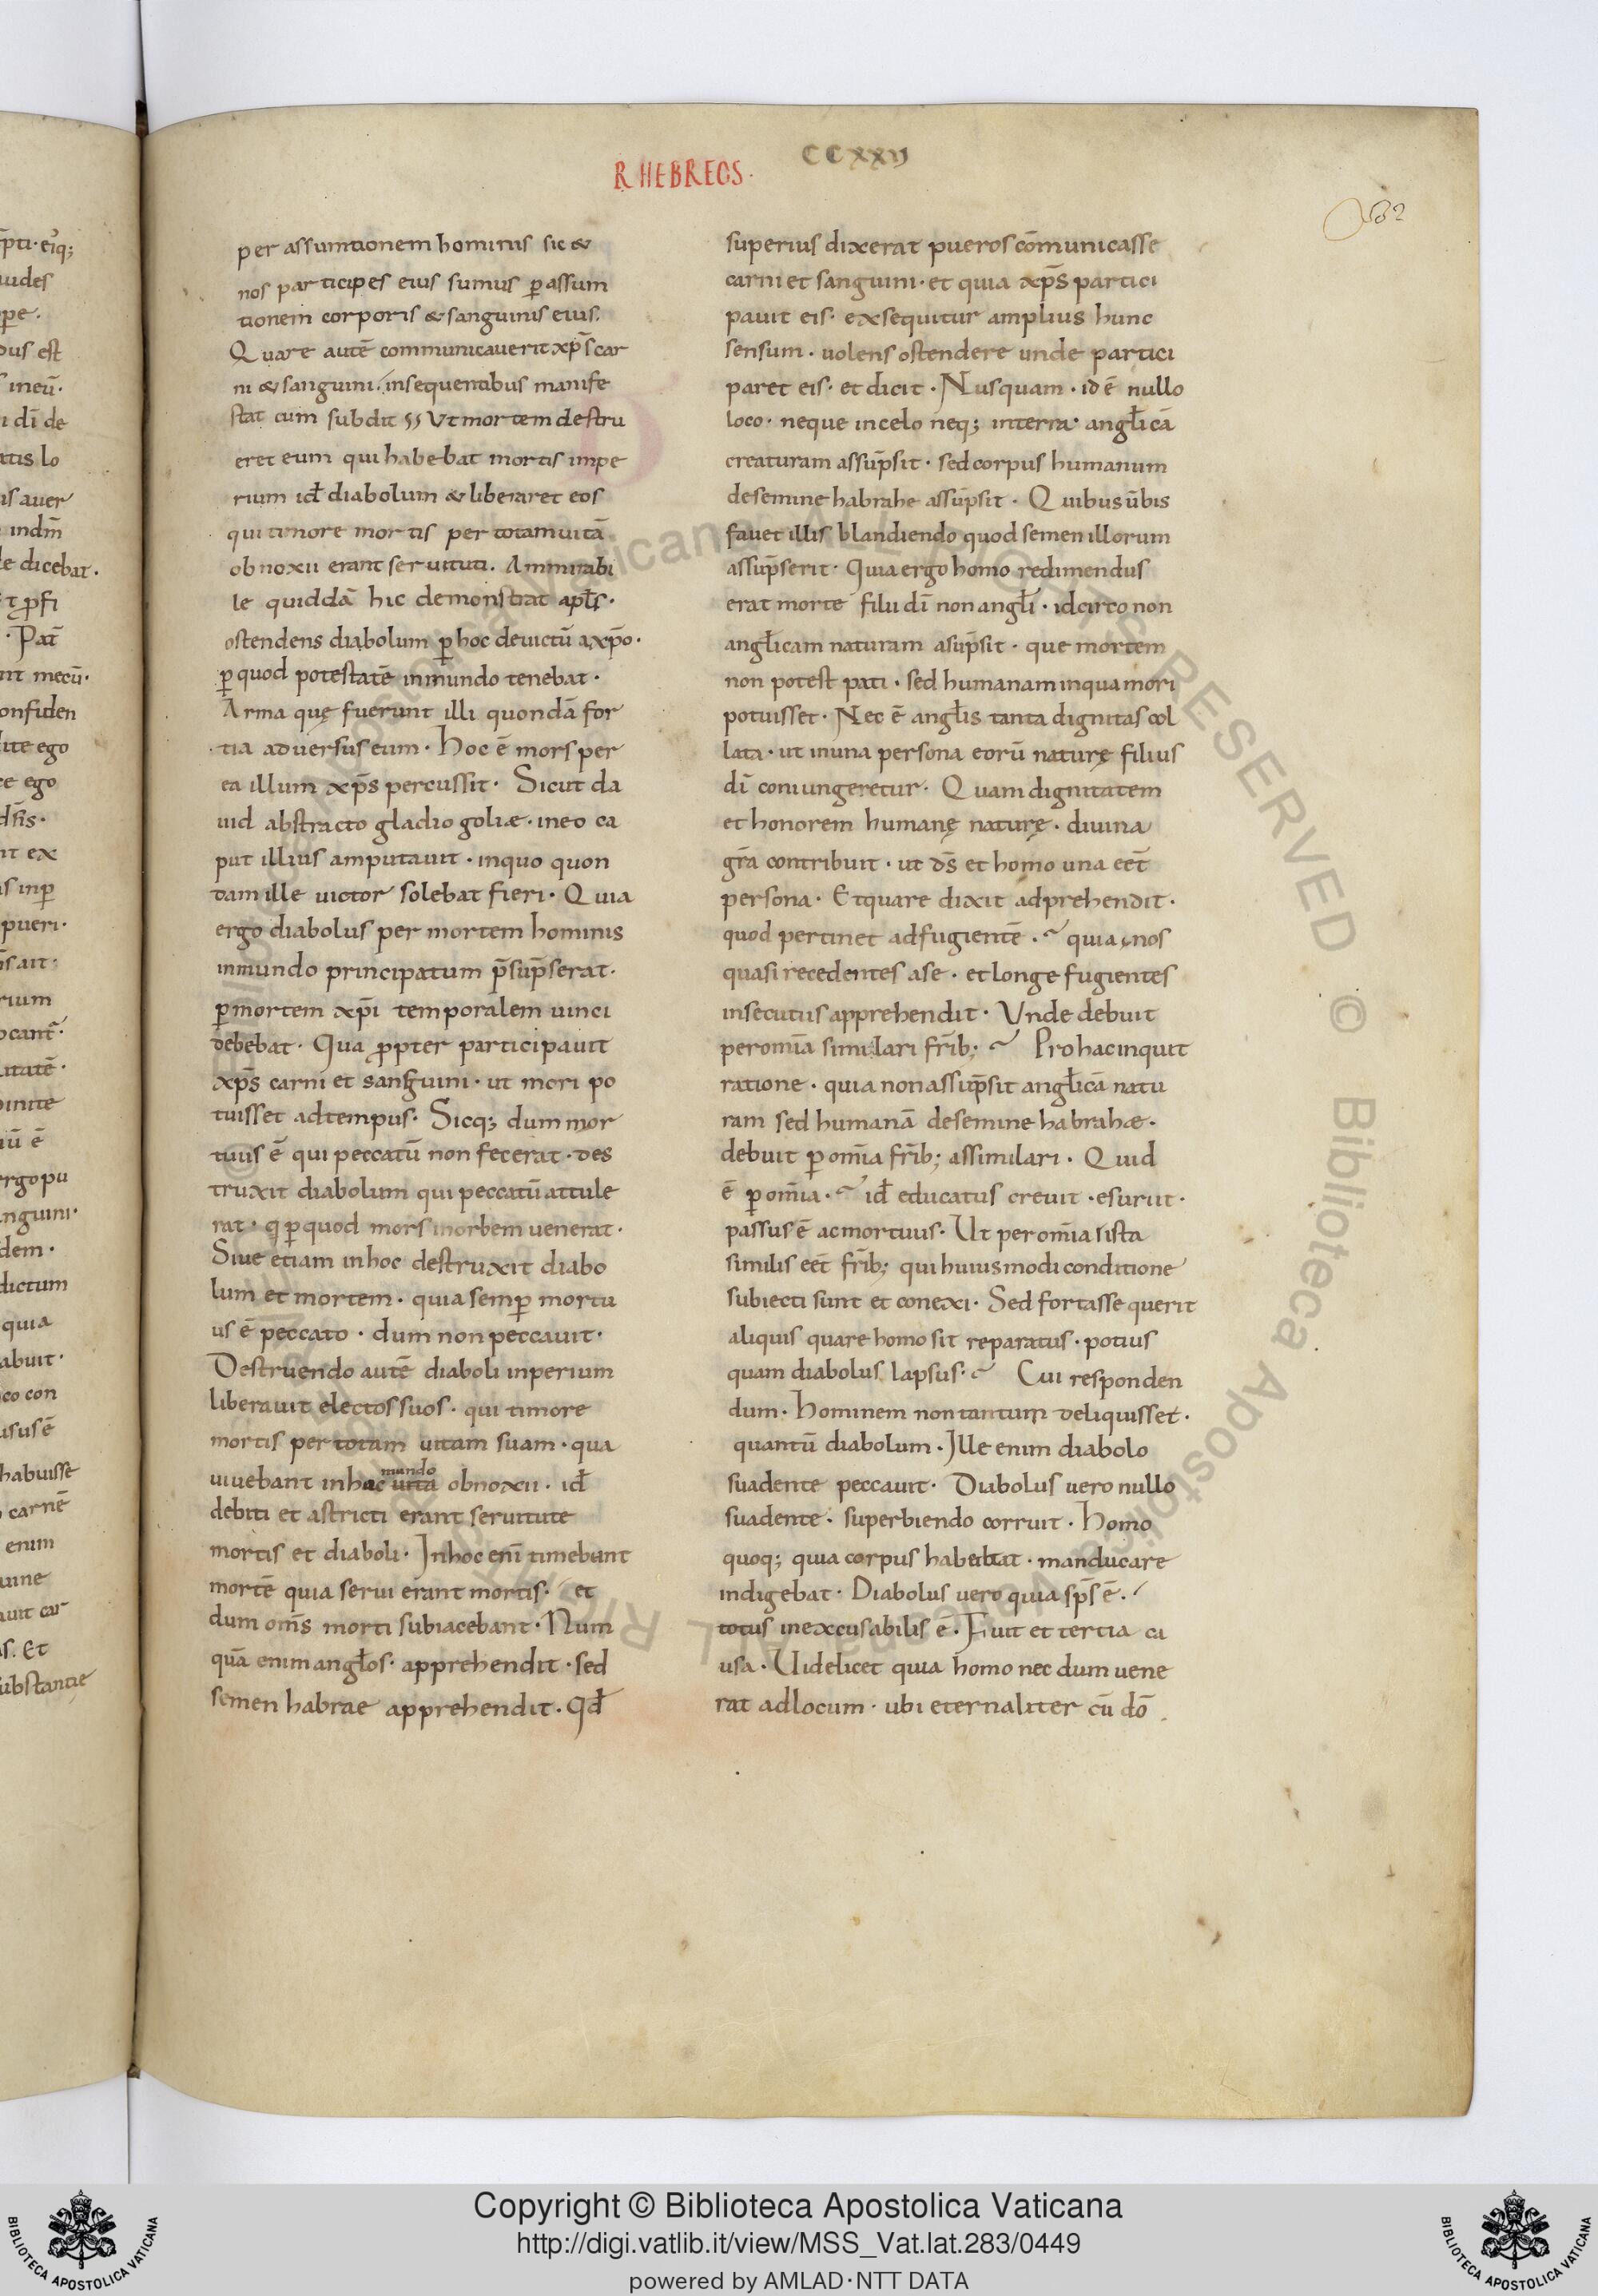 R HEBREOS.
CCXXII
per assumtionem hominis sic &
nos participes eius sumus p̱ assum
tionem corporis & sanguinis eius.
Quare autē communicauerit xp̄s car
ni & sanguini. insequentibus manife
stat cum subdit §§ Vt mortem destru
eret eum qui habebat mortis impe
rium id̄ diabolum & liberaret eos
qui timore mortis per totam uitā
obnoxii erant seruituti. Ammirabi
le quiddā hic demonstrat apl̄s·
ostendens diabolum p̱ hoc deuictū a xp̄o·
p̱ quod potestatē inmundo tenebat·
Arma quę fuerunt illi quondā for
tia aduersus eum· Hoc ē mors per
ea illum xp̄s percussit· Sicut da
uid abstracto gladio goliæ· ineo ca
put illius amputauit· inquo quon
dam ille uictor solebat fieri· Quia
ergo diabolus per mortem hominis
inmundo principatum p̄sūpserat·
p̱ mortem xp̄i temporalem uinci
debebat· Qua p̱pter participauit
xp̄s carni et sanguini· ut mori po
tuisset adtempus· Sicq; dum mor
tuus ē qui peccatū non fecerat· des
truxit diabolum qui peccatū attule
rat· q p̱ quod mors morbem uenerat·
Siue etiam inhoc destruxit diabo
lum et mortem· quia semp̱ mortu
us ē peccato· dum non peccauit·
Destruendo autē diaboli inperium
liberauit electos suos· qui timore
mortis per totam uitam suam· qua
mundo
uiuebant inhac uita obnoxii· id̄
debiti et astricti erant seruitute
mortis et diaboli· Inhoc eni̅ timebant
mortē quia serui erant mortis· et
dum om̄s morti subiacebant· Num
quā enim angl̄os· apprehendit· sed
semen habrae apprehendit· Qd̄
superius dixerat pueros cōmunicasse
carni et sanguini· et quia xp̄s partici
pauit eis· exsequitur amplius hunc
sensum· uolens ostendere unde partici
paret eis· et dicit· Nusquam· id ē nullo
loco· neque incelo neq; interra· angl̄icā
creaturam assūpsit· sed corpus humanum
desemine habrahe assūpsit· Quibus ūbis
fauet illis blandiendo quod semen illorum
assūpserit· Quia ergo homo redimendus
erat morte filii dī non angl̄i· idcirco non
angl̄icam naturam asūpsit· que mortem
non potest pati· sed humanam inqua mori
potuisset· Nec ē angl̄is tanta dignitas col
lata· ut inuna persona eorū naturę filius
dī coniungeretur· Quam dignitatem
et honorem humanę naturę· diuina
gr̄a contribuit· ut ds̄ et homo una eēt
persona· Et quare dixit adprehendit·
quod pertinet adfugientē· quia nos
quasi recedentes ase· et longe fugientes
insecutus apprehendit· Vnde debuit
peromīa similari fr̄ib; Pro hac inquit
ratione· quia non assūpsit angl̄icā natu
ram sed humanā desemine habrahæ·
debuit p̱ omīa fr̄ib; assimilari· Quid
ē p̱ omīa· id̄ educatus creuit· esuriit·
passus ē ac mortuus· Ut per omīa ista
similis eēt fr̄ib; qui huiusmodi conditione
subiecti sunt et conexi· Sed fortasse querit
aliquis quare homo sit reparatus· potius
quam diabolus lapsus· Cui responden
dum· Hominem non tantum deliquisset·
quantū diabolum· Ille enim diabolo
suadente peccauit· Diabolus uero nullo
suadente· superbiendo corruit· Homo
quoq; quia corpus habebat· manducare
indigebat· Diabolus uero quia sp̄s ē·
totus inexcusabilis ē· Fuit et tertia ca
usa· Uidelicet quia homo nec dum uene
rat adlocum· ubi eternaliter cū dō
Copyright © Biblioteca Apostolica Vaticana
http://digi.vatlib.it/view/MSS_Vat.lat.283/0449
powered by AMLAD·NTT DATA
BIBLIOTECA APOSTOLICA VATICANA
BIBLIOTECA APOSTOLICA VATICANA